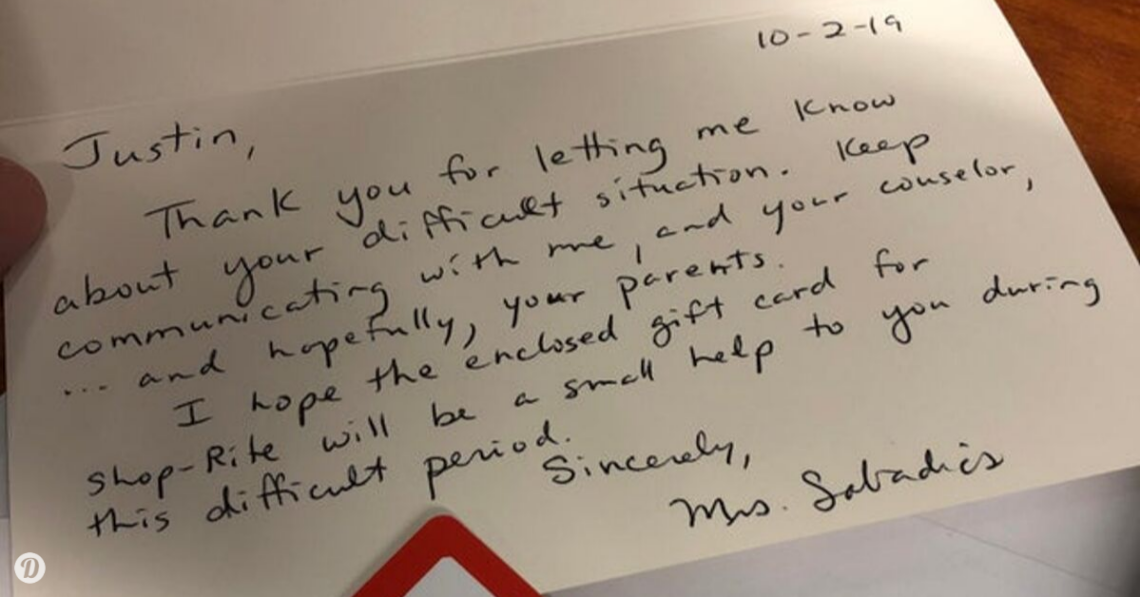 10-2-19
Justin,
Thank you for letting me know
about your difficult situation. Keep
communicating with me, and your counselor,
... and hopefully, your parents.
I hope the enclosed gift card for
Shop-Rite will be a small help to you during
this difficult period.
Sincerely,
Mrs. Sabadics
D